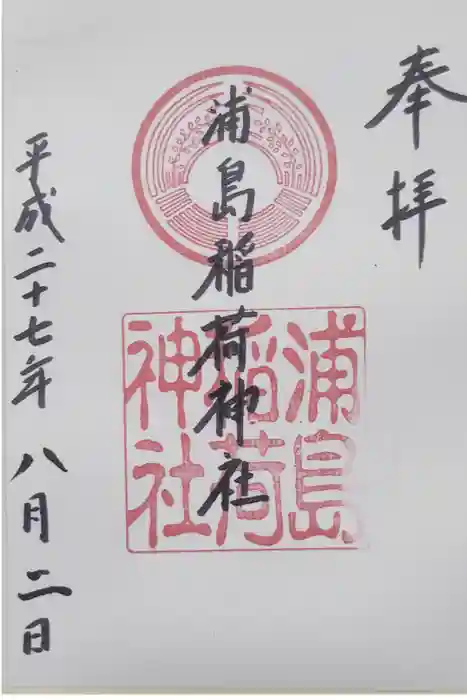 奉拝
浦島稲荷神社
浦島
稲荷
神社
平成二十七年 八月二日